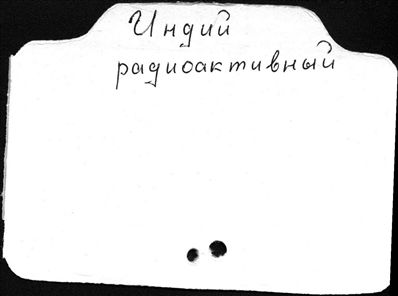 Индий
радиоактивный